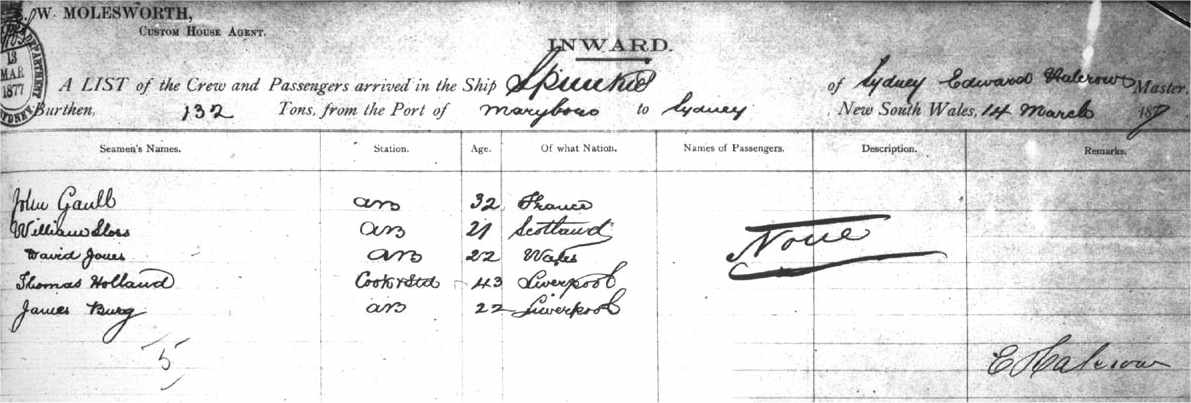 W. MOLESWORTH,
CUSTOM HOUSE AGENT.
13
MAR
1877
DEPARTMENT
SYDNEY
INWARD.
A LIST of the Crew and Passengers arrived in the Ship Spunkie of Sydney Edward Halcrow Master.
Burthen, 132 Tons, from the Port of Maryboro to Sydney New South Wales, 14 March 187
Seamen's Names. Station. Age. Of what Nation. Names of Passengers. Description. Remarks.
John Gaull AB 32 France
William Sloss AB 21 Scotland
David Jones AB 22 Wales
None
Thomas Holland Cook & Std 43 Liverpool
James Burg AB 22 Liverpool
5
E Halcrow